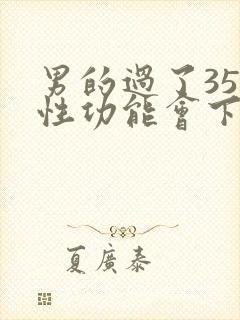 男的過了35
性功能會下
夏廣泰